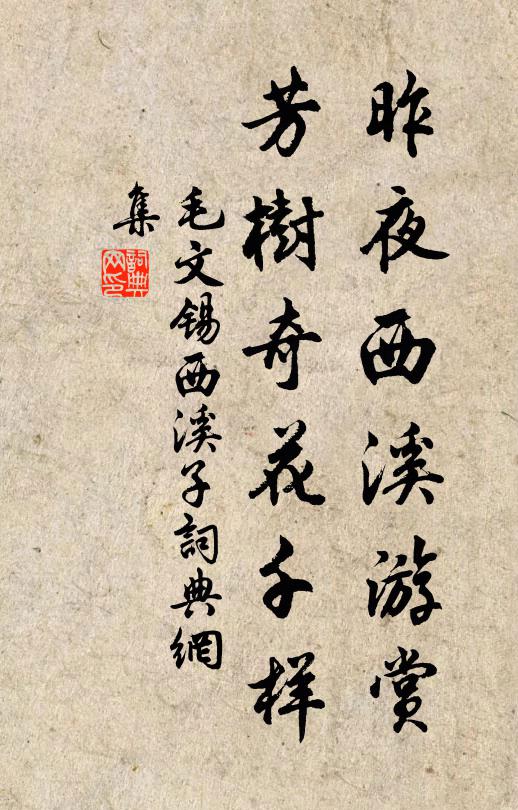 昨夜西溪游赏
芳樹奇花千样
毛文锡西溪子詞典網
集
詞典
网印